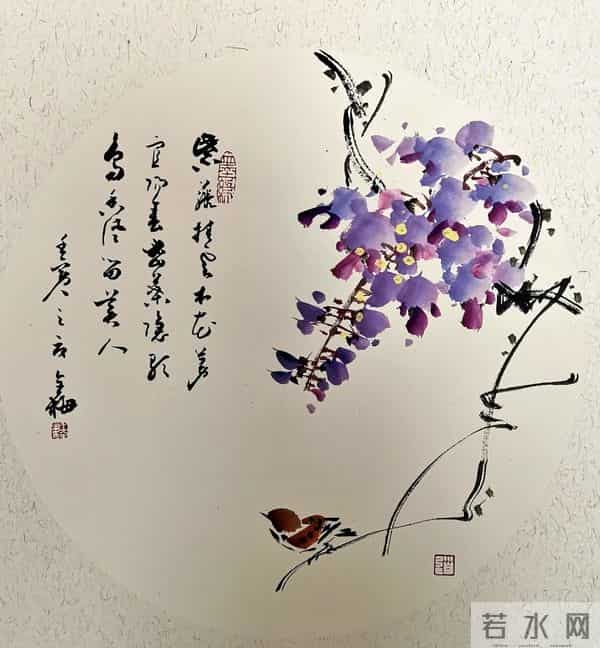 紫藤挂云木花蔓
宜阳春密葉隐歌
鸟香风留美人
壬寅之
若水网